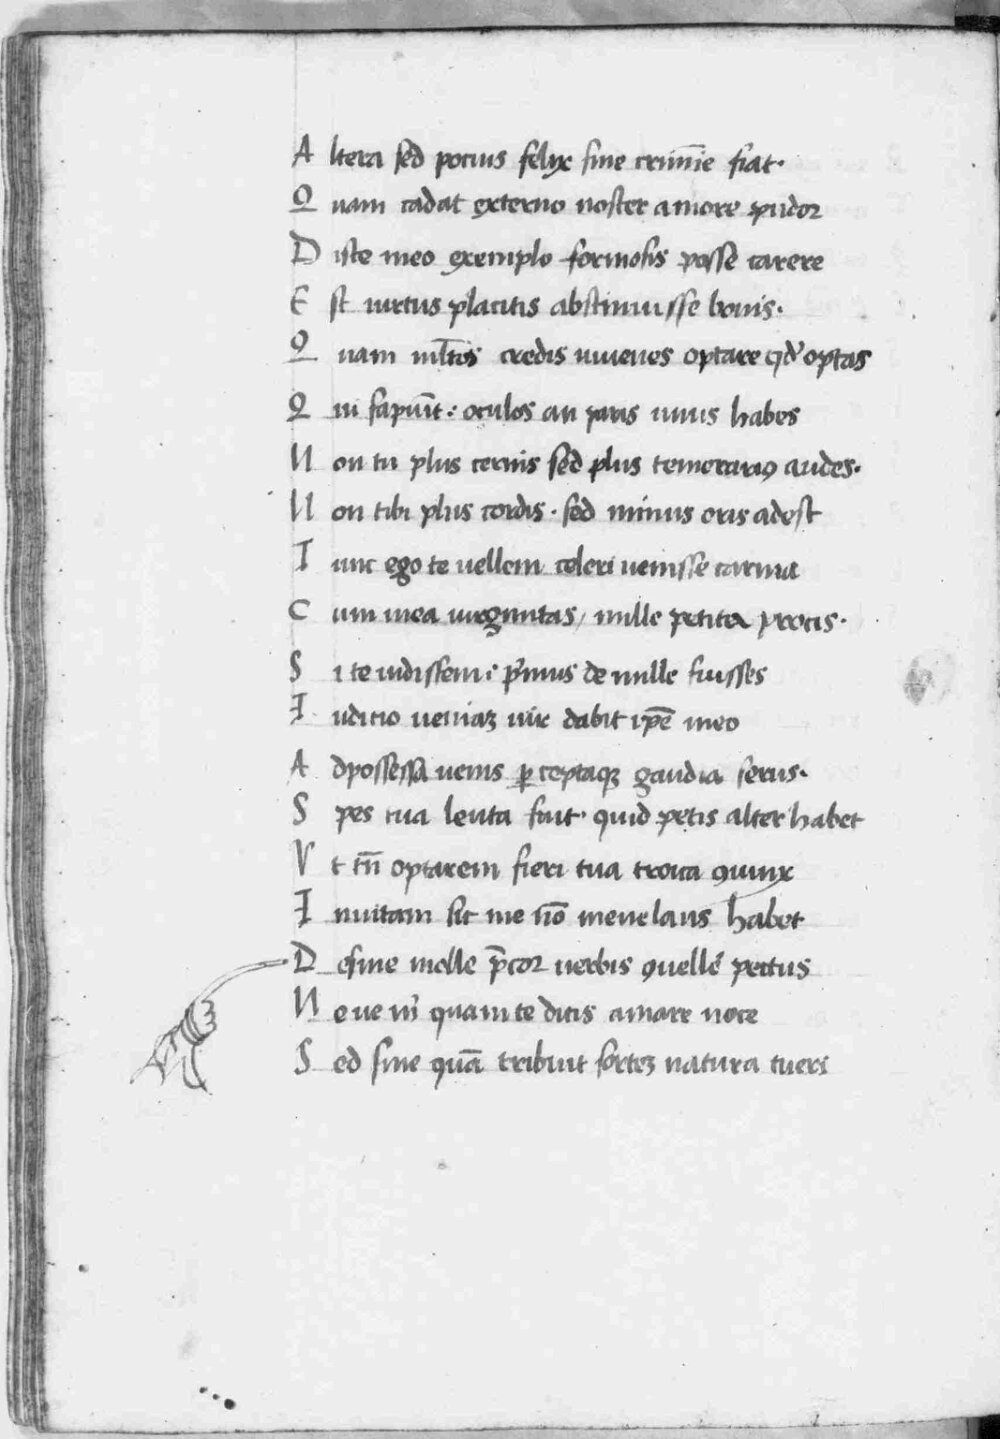 A ltera sed pocius felix sine crimīe fiat·
Q uam cadat externo noster amore pudor
D isce meo exemplo formosis posse carere
E st uirtus placitis abstinuisse bonis·
Q uam ml̄tos credis iuuenes optare qd' optas
Q ui sapiūt: oculos an paris unus habes
N on tu plus cernis sed plus temerarius audes·
N on tibi plus cordis· sed minus oris adest
T unc ego te uellem celeri uenisse carina
C um mea uirginitas / mille petita procis·
S i te uidissem: p'mus de mille fuisses
I uditio ueniaʒ uir dabit ip̄e meo
A d possessa uenis p̱ceptaqʒ gaudia serus·
S pes tua lenta fuit· quid petis alter habet
V t tn̄ optarem fieri tua troica ꝯiunx
I nuitam sic me nō menelaus habet
D esine molle p̄cor uerbis ꝯuelle' pectus
N eue m' quam te dicis amare noce
S ed sine quā tribuit sorteʒ natura tueri